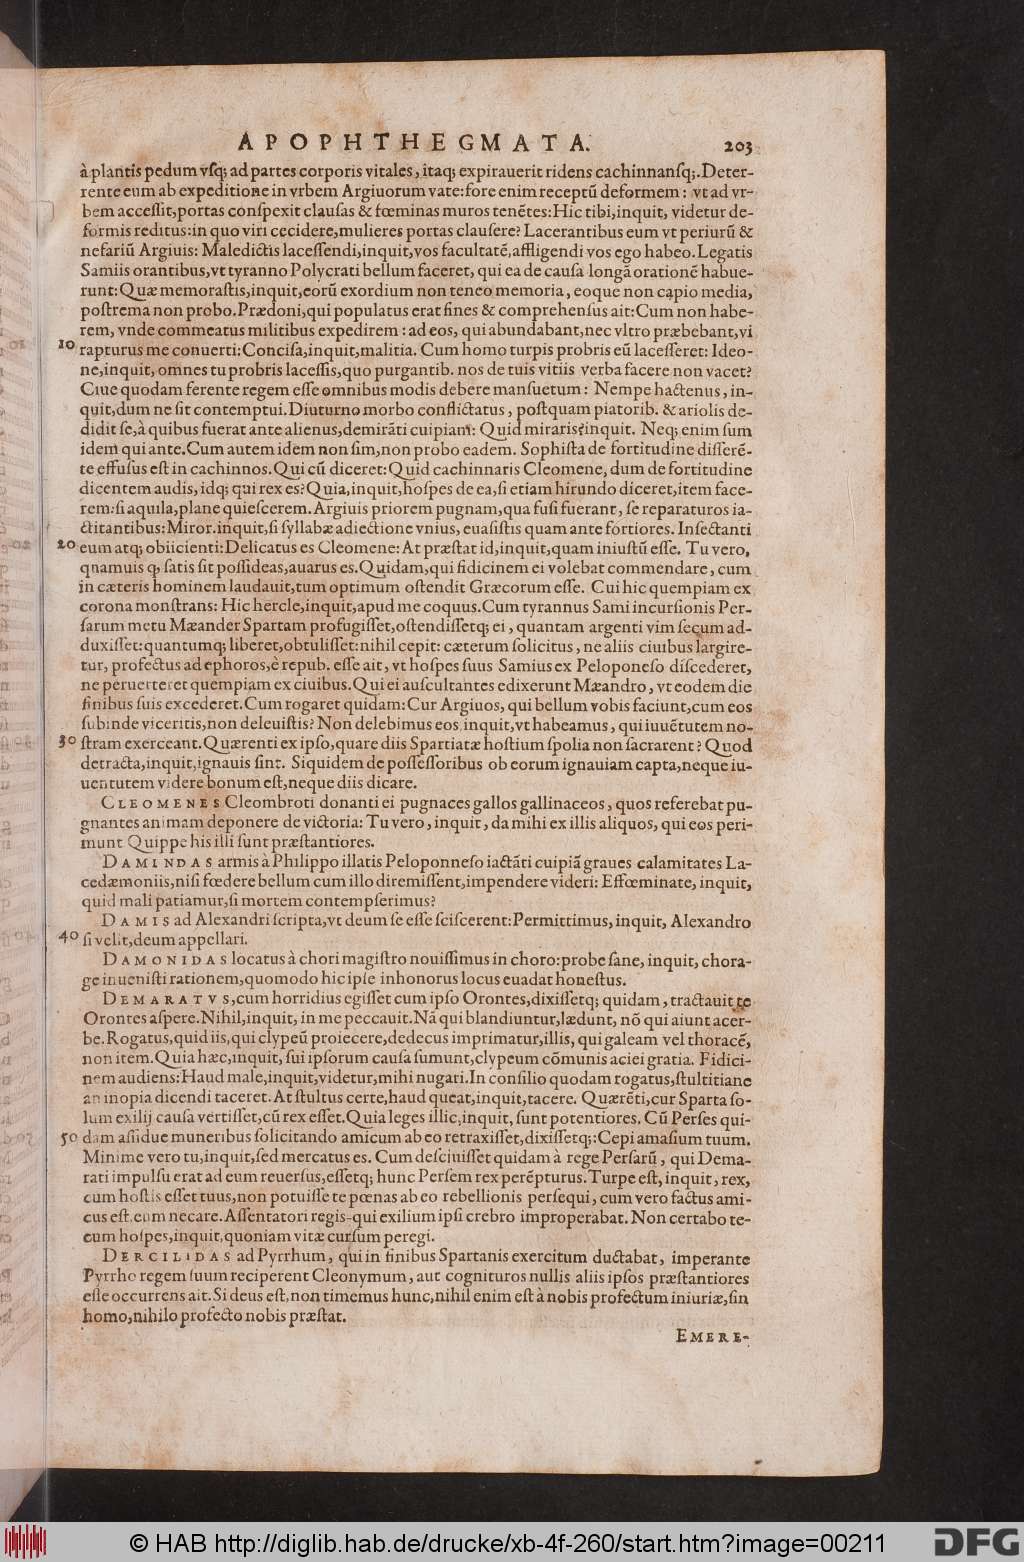 APOPHTHEGMATA. 203
à plantis pedum vſq; ad partes corporis vitales, itaq; expirauerit ridens cachinnanſq;. Deter-
rente eum ab expeditione in vrbem Argiuorum vate: fore enim receptũ deformem: vt ad vr-
bem acceſſit, portas conſpexit clauſas & fœminas muros tenẽtes: Hic tibi, inquit, videtur de-
formis reditus: in quo viri cecidere, mulieres portas clauſere? Lacerantibus eum vt periurũ &
nefariũ Argiuis: Maledictis laceſſendi, inquit, vos facultatẽ, affligendi vos ego habeo. Legatis
Samiis orantibus, vt tyranno Polycrati bellum faceret, qui ea de cauſa longã orationẽ habue-
runt: Quæ memoraſtis, inquit, eorũ exordium non teneo memoria, eoque non capio media,
poſtrema non probo. Prædoni, qui populatus erat fines & comprehenſus ait: Cum non habe-
rem, vnde commeatus militibus expedirem: ad eos, qui abundabant, nec vltro præbebant, vi
10 rapturus me conuerti: Conciſa, inquit, malitia. Cum homo turpis probris eũ laceſſeret: Ideo-
ne, inquit, omnes tu probris laceſſis, quo purgantib. nos de tuis vitiis verba facere non vacet?
Ciue quodam ferente regem eſſe omnibus modis debere manſuetum: Nempe hactenus, in-
quit, dum ne ſit contemptui. Diuturno morbo conflictatus, poſtquam piatorib. & ariolis de-
didit ſe, à quibus fuerat ante alienus, demirãti cuipiam: Quid miraris? inquit. Neq; enim ſum
idem qui ante. Cum autem idem non ſim, non probo eadem. Sophiſta de fortitudine diſſerẽ-
te effuſus eſt in cachinnos. Qui cũ diceret: Quid cachinnaris Cleomene, dum de fortitudine
dicentem audis, idq; qui rex es? Quia, inquit, hoſpes de ea, ſi etiam hirundo diceret, item face-
rem: ſi aquila, plane quieſcerem. Argiuis priorem pugnam, qua fuſi fuerant, ſe reparaturos ia-
ctitantibus: Miror. inquit, ſi ſyllabæ adiectione vnius, euaſiſtis quam ante fortiores. Inſectanti
20 eum atq; obiicienti: Delicatus es Cleomene: At præſtat id, inquit, quam iniuſtũ eſſe. Tu vero,
quamuis q, ſatis ſit poſſideas, auarus es. Quidam, qui fidicinem ei volebat commendare, cum
in cæteris hominem laudauit, tum optimum oſtendit Græcorum eſſe. Cui hic quempiam ex
corona monſtrans: Hic hercle, inquit, apud me coquus. Cum tyrannus Sami incurſionis Per-
ſarum metu Mæander Spartam profugiſſet, oſtendiſſetq; ei, quantam argenti vim ſecum ad-
duxiſſet: quantumq; liberet, obtuliſſet: nihil cepit: cæterum ſolicitus, ne aliis ciuibus largire-
tur, profectus ad ephoros, è repub. eſſe ait, vt hoſpes ſuus Samius ex Peloponeſo diſcederet,
ne peruerteret quempiam ex ciuibus. Qui ei auſcultantes edixerunt Mæandro, vt eodem die
finibus ſuis excederet. Cum rogaret quidam: Cur Argiuos, qui bellum vobis faciunt, cum eos
ſubinde viceritis, non deleuiſtis? Non delebimus eos inquit, vt habeamus, qui iuuẽtutem no-
30 ſtram exerceant. Quærenti ex ipſo, quare diis Spartiatæ hoſtium ſpolia non ſacrarent? Quod
detracta, inquit, ignauis ſint. Siquidem de poſſeſſoribus ob eorum ignauiam capta, neque iu-
uentutem videre bonum eſt, neque diis dicare.
CLEOMENES Cleombroti donanti ei pugnaces gallos gallinaceos, quos referebat pu-
gnantes animam deponere de victoria: Tu vero, inquit, da mihi ex illis aliquos, qui eos peri-
munt Quippe his illi ſunt præſtantiores.
DAMINDAS armis à Philippo illatis Peloponneſo iactãti cuipiã graues calamitates La-
cedæmoniis, niſi fœdere bellum cum illo diremiſſent, impendere videri: Effœminate, inquit,
quid mali patiamur, ſi mortem contempſerimus?
DAMIS ad Alexandri ſcripta, vt deum ſe eſſe ſciſcerent: Permittimus, inquit, Alexandro
40 ſi velit, deum appellari.
DAMONIDAS locatus à chori magiſtro nouiſſimus in choro: probe ſane, inquit, chora-
ge inueniſti rationem, quomodo hic ipſe inhonorus locus euadat honeſtus.
DEMARATVS, cum horridius egiſſet cum ipſo Orontes, dixiſſetq; quidam, tractauit te
Orontes aſpere. Nihil, inquit, in me peccauit. Nã qui blandiuntur, lædunt, nõ qui aiunt acer-
be. Rogatus, quid iis, qui clypeũ proiecere, dedecus imprimatur, illis, qui galeam vel thoracẽ,
non item. Quia hæc, inquit, ſui ipſorum cauſa ſumunt, clypeum cõmunis aciei gratia. Fidici-
nem audiens: Haud male, inquit, videtur, mihi nugari. In conſilio quodam rogatus, ſtultitiane
an inopia dicendi taceret. At ſtultus certe, haud queat, inquit, tacere. Quærẽti, cur Sparta ſo-
lum exilij cauſa vertiſſet, cũ rex eſſet. Quia leges illic, inquit, ſunt potentiores. Cũ Perſes qui-
50 dam aſſidue muneribus ſolicitando amicum ab eo retraxiſſet, dixiſſetq;: Cepi amaſium tuum.
Minime vero tu, inquit, ſed mercatus es. Cum deſciuiſſet quidam à rege Perſarũ, qui Dema-
rati impulſu erat ad eum reuerſus, eſſetq; hunc Perſem rex perẽpturus. Turpe eſt, inquit, rex,
cum hoſtis eſſet tuus, non potuiſſe te pœnas ab eo rebellionis perſequi, cum vero factus ami-
cus eſt, eum necare. Aſſentatori regis, qui exilium ipſi crebro improperabat. Non certabo te-
cum hoſpes, inquit, quoniam vitæ curſum peregi.
DERCILIDAS ad Pyrrhum, qui in finibus Spartanis exercitum ductabat, imperante
Pyrrho regem ſuum reciperent Cleonymum, aut cognituros nullis aliis ipſos præſtantiores
eſſe occurrens ait. Si deus eſt, non timemus hunc, nihil enim eſt à nobis profectum iniuriæ, ſin
homo, nihilo profecto nobis præſtat.
EMERE-
© HAB http://diglib.hab.de/drucke/xb-4f-260/start.htm?image=00211
DFG